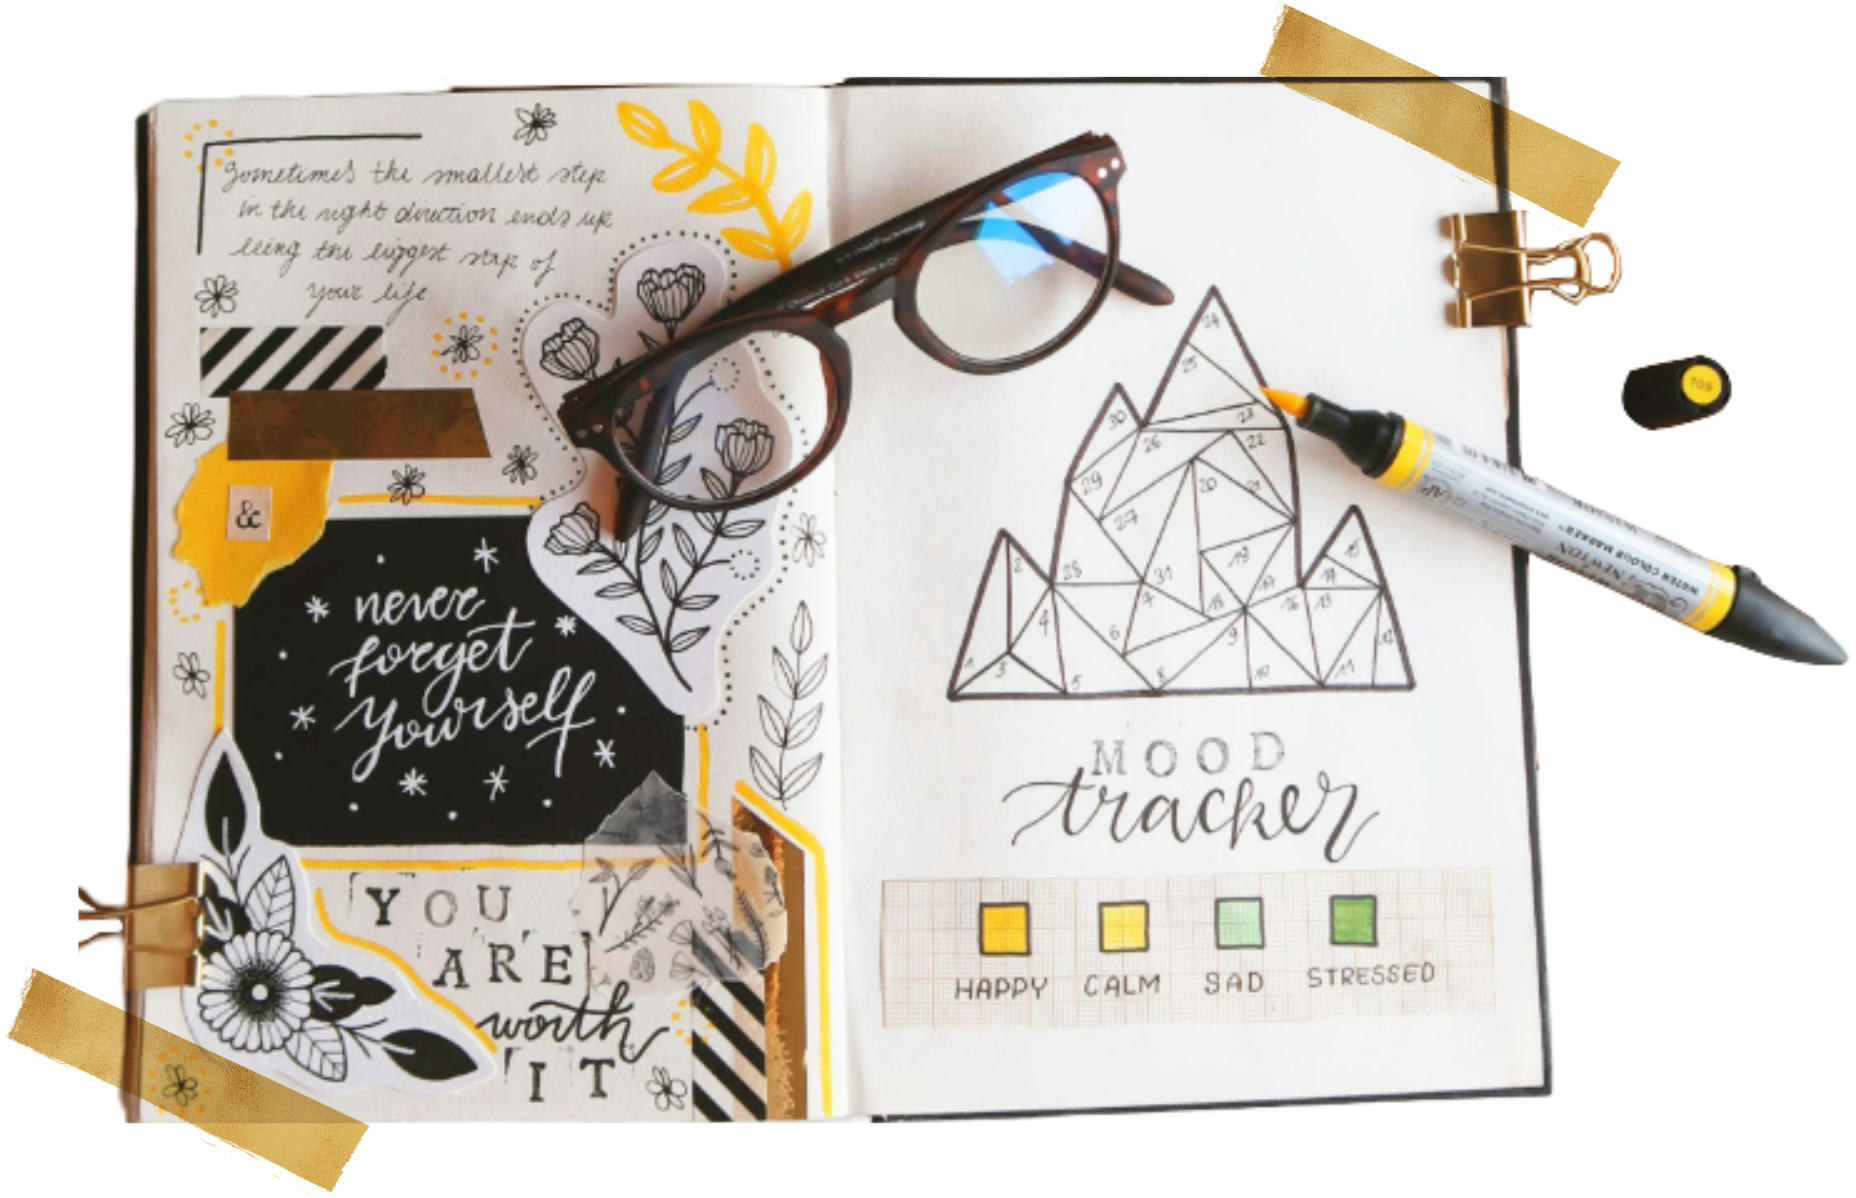 Sometimes the smallest step
in the right direction ends up
being the biggest step of
your life.
&
never
forget
yourself
YOU
ARE
worth
IT
24
25
30
23
26
22
29
20
21
27
15
2
19
28
31
17
14
7
18
16
13
4
6
9
12
1
3
10
11
5
8
MOOD
tracker
HAPPY CALM SAD STRESSED
109
WATER COLOUR MARKER